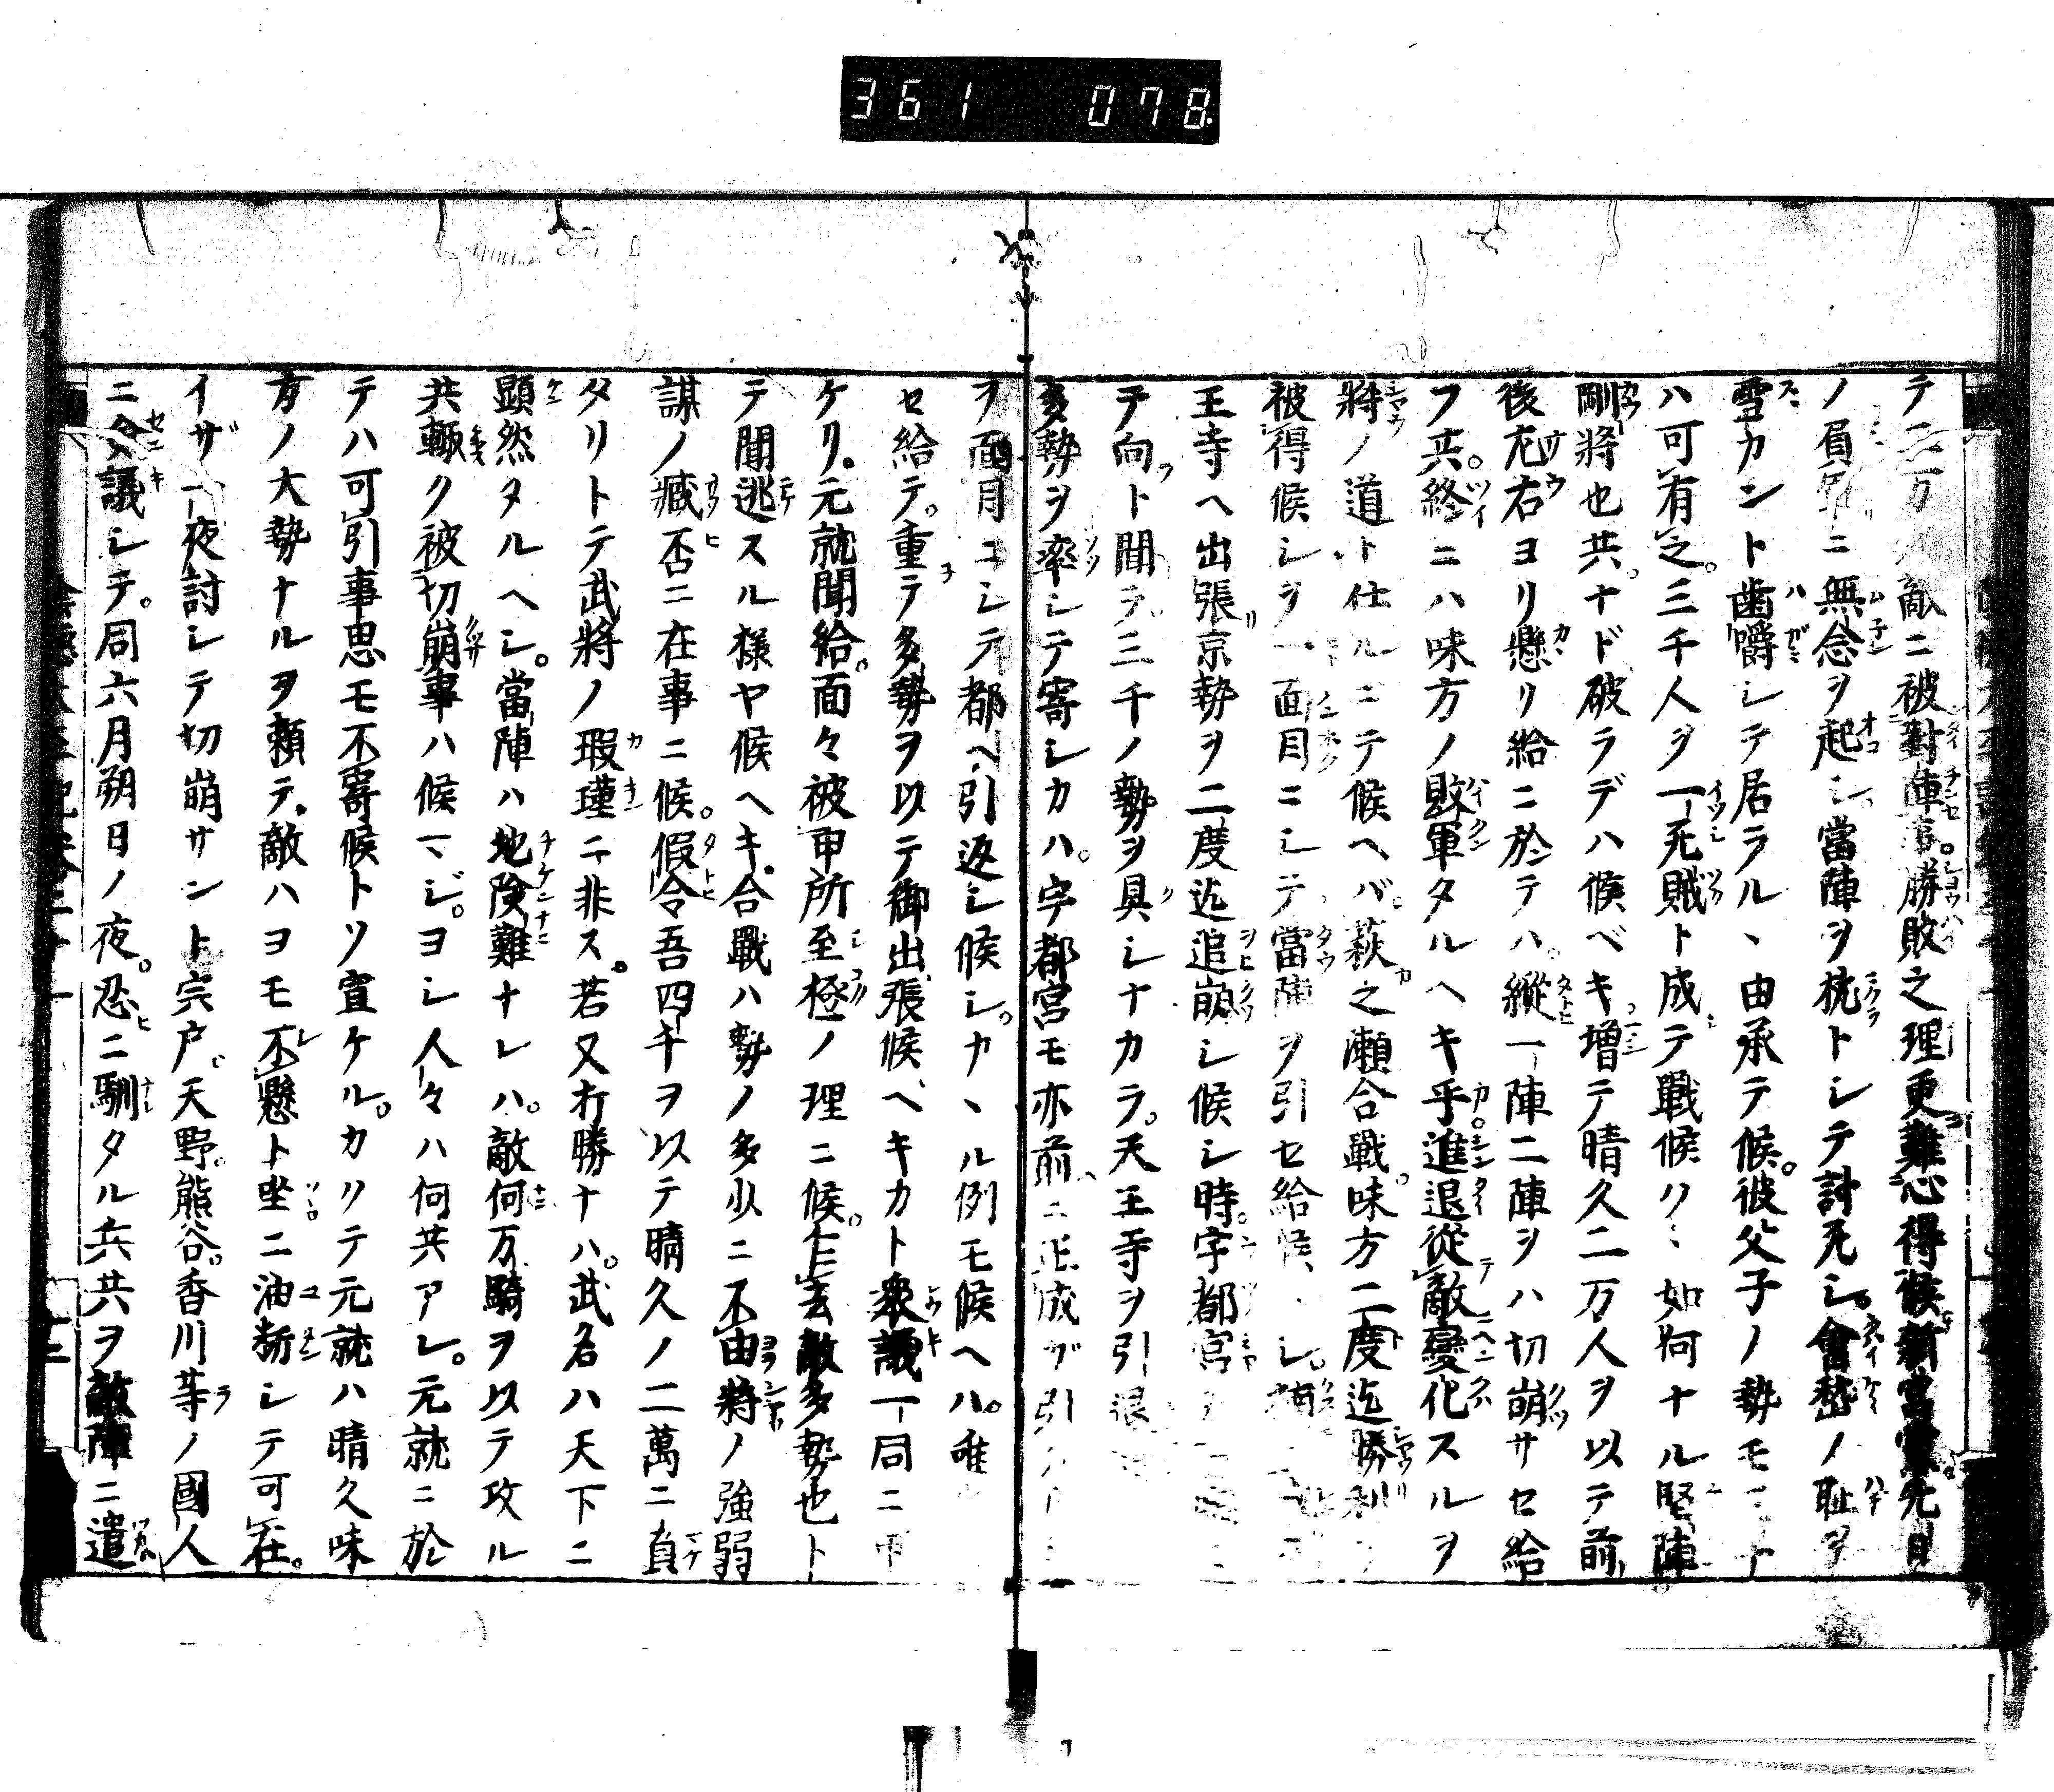 361 078
テ二万ノ敵ニ被對陣事。勝敗之理更難心得候新宮黨先日
ノ負軍ニ無念ヲ起シ當陣ヲ枕トシテ討死シ。會嵆ノ耻ヲ
雪カント歯嚼シテ居ラル丶由承テ候。彼父子ノ勢モ三千
ハ可有之。三千人ヲ一死賊ト成テ戰候ハ丶如何ナル堅陣
剛將也共。ナド破ラデハ候ベキ増テ晴久二万人ヲ以テ前
後左右ヨリ懸リ給ニ於テハ。縱一陣二陣ヲハ切崩サセ給
フ共。終ニハ味方ノ敗軍タルヘキ乎。進退從敵變化スルヲ
將ノ道ト仕ルニテ候ヘバ。萩之瀬合戰。味方二度迄勝利
被得候シヲ一面目ニシテ當陣ヲ引セ給候
王寺ヘ出張京勢ヲ二度迄追崩シ候シ時。宇都宮
テ向ト聞テ三千ノ勢ヲ具シナカラ。天王寺ヲ引退
多勢ヲ率シテ寄シカハ。宇都宮モ亦前ニ正成ガ引
ヲ面目ニシテ都ヘ引返シ候シ。カ丶ル例モ候ヘハ。唯
セ給テ。重テ多勢ヲ以テ御出張候ヘキカト衆議一同ニ申
ケリ。元就聞給。面々被申所至極ノ理ニ候。乍去敵多勢也ト
テ聞逃スル樣ヤ候ヘキ。合戰ハ勢ノ多少ニ不由將ノ強弱
謀ノ臧否ニ在事ニ候。假令吾四千ヲ以テ晴久ノ二萬ニ負
タリトテ武將ノ瑕瑾ニ非ス。若又打勝ナハ。武名ハ天下ニ
顯然タルヘシ。當陣ハ地險難ナレハ。敵何万騎ヲ以テ攻ル
共輙ク被切崩事ハ候マジ。ヨシ人々ハ何共アレ。元就ニ於
テハ可引事思モ不寄候トソ宣ケル。カリテ元就ハ晴久味
方ノ大勢ナルヲ頼テ。敵ハヨモ不懸ト坐ニ油斷シテ可在。
イザ一夜討シテ切崩サント宍戸。天野。熊谷。香川等ノ國人
ニ僉議シテ。同六月朔日ノ夜。忍ニ馴タル兵共ヲ敵陣ニ遣